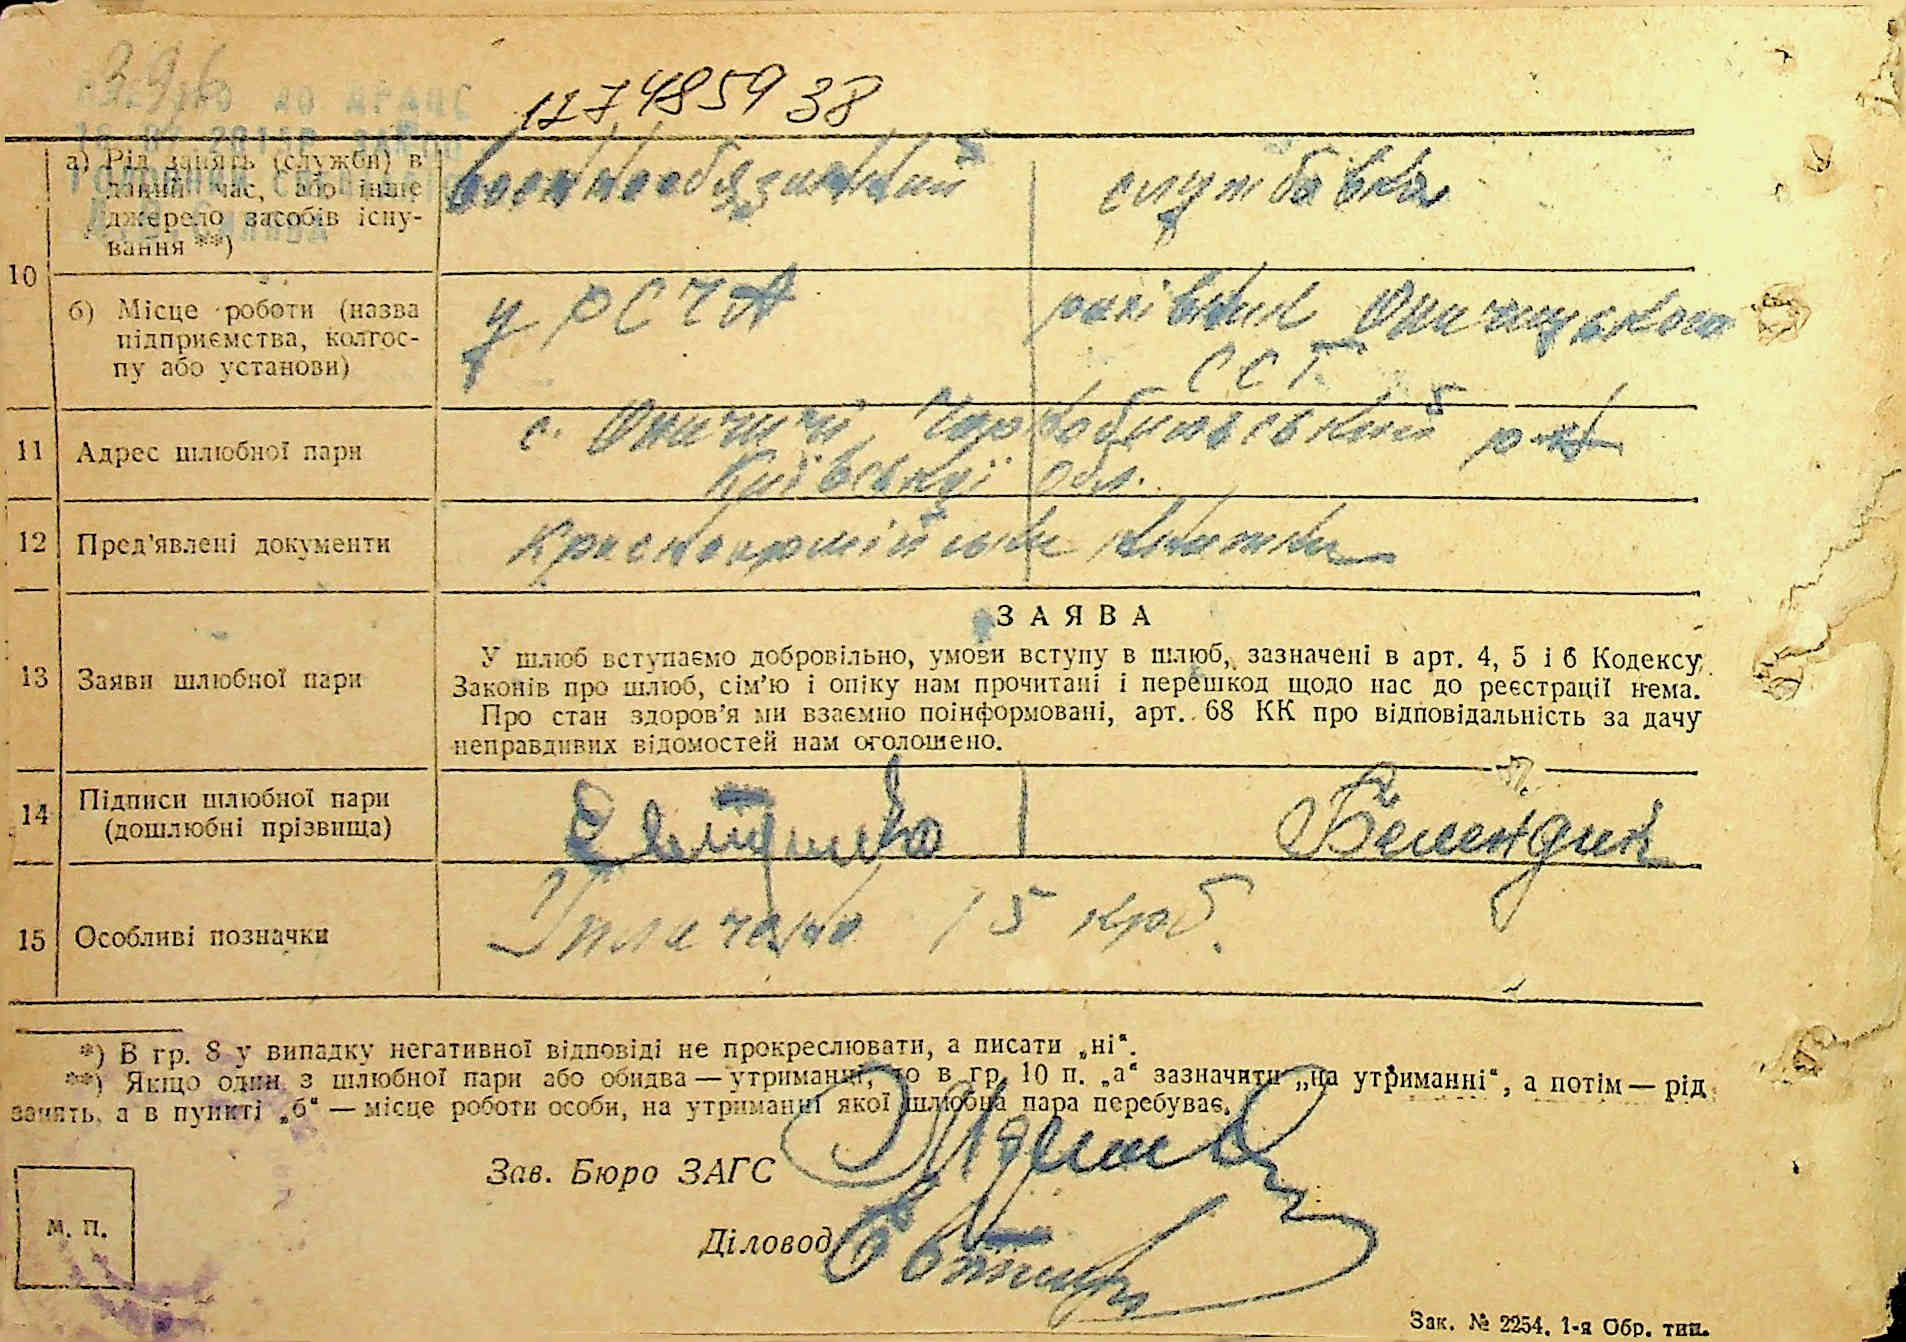 396
1274859 38
10
а) Рід занять (служби) в
даний час, або інше
джерело засобів існу-
вання **)
военнообязанний
службовка
б) Місце роботи (назва
підприємства, колгос-
пу або установи)
у РСЧА
рахівник Опачицького
ССТ
11 Адрес шлюбної пари
с. Опачичі Чорнобильський р-н
Київської обл.
12 Пред'явлені документи
красноармійська книжка
ЗАЯВА
13 Заяви шлюбної пари
У шлюб вступаємо добровільно, умови вступу в шлюб, зазначені в арт. 4, 5 і 6 Кодексу
Законів про шлюб, сім'ю і опіку нам прочитані і перешкод щодо нас до реєстрації нема.
Про стан здоров'я ми взаємно поінформовані, арт. 68 КК про відповідальність за дачу
неправдивих відомостей нам оголошено.
14 Підписи шлюбної пари
(дошлюбні прізвища)
15 Особливі позначки
Уплачено 15 крб.
*) В гр. 8 у випадку негативної відповіді не прокреслювати, а писати „ні“.
**) Якщо один з шлюбної пари або обидва — утриманці, то в гр. 10 п. „а“ зазначити „на утриманні“, а потім — рід
занять, а в пункті „б“ — місце роботи особи, на утриманні якої шлюбна пара перебуває.
Зав. Бюро ЗАГС
М. П.
Діловод
Зак. № 2254. 1-я Обр. тип.